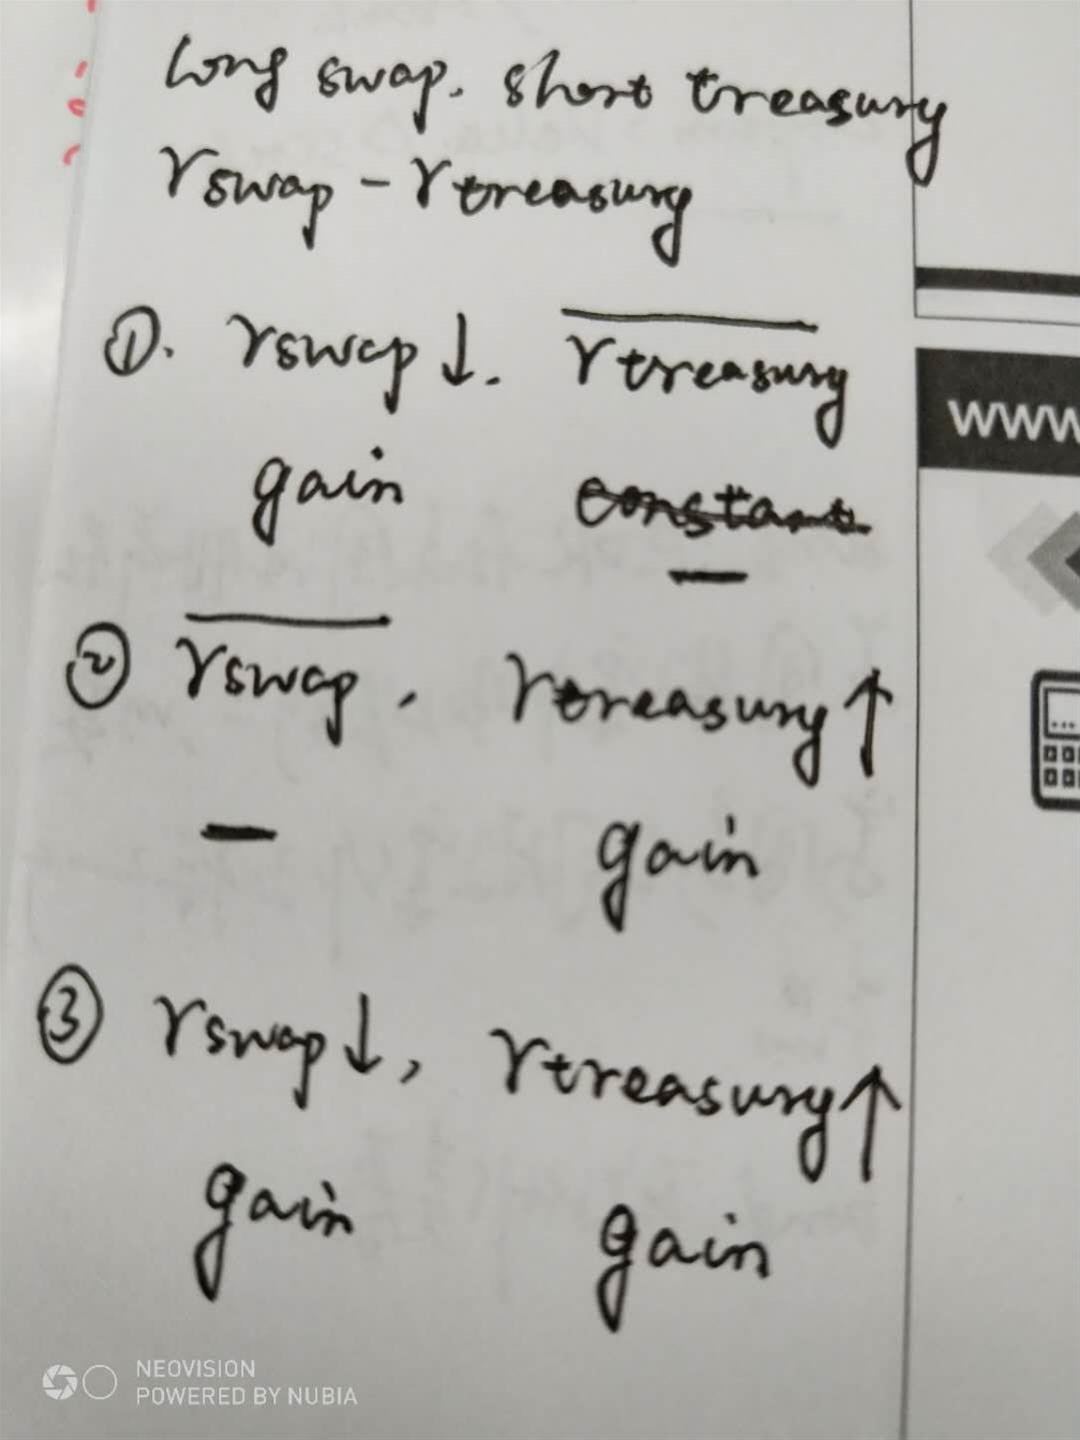 long swap. short treasury
rswap - rtreasury
①. rswap ↓. rtreasury
gain constant
—
② rswap, rtreasury ↑
— gain
③ rswap ↓, rtreasury ↑
gain gain
WWW
NEOVISION
POWERED BY NUBIA